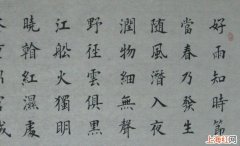 好雨知時節
當春乃發生
隨風潛入夜
潤物細無聲
野徑雲俱黑
江舩火獨明
曉紅濕處